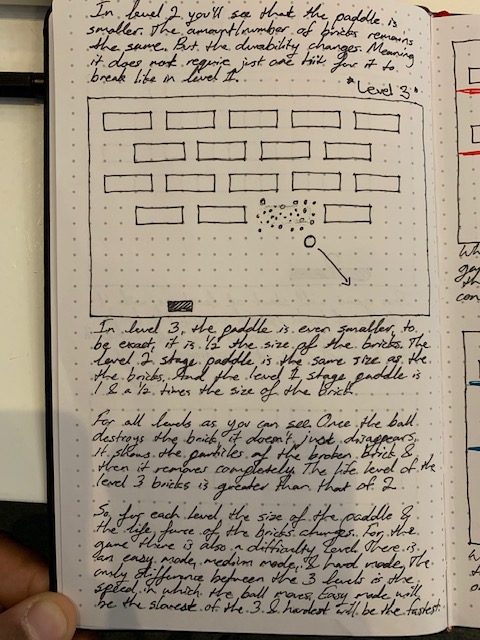 In level 2 you'll see that the paddle is
smaller. The amount/number of bricks remains
the same. But the durability changes. Meaning
it does not require just one hit for it to
break like in level 1.
"Level 3"
In level 3, the paddle is even smaller, to
be exact, it is 1/2 the size of the bricks. The
level 2 stage paddle is the same size as the
the bricks. And the level 1 stage paddle is
1 & a 1/2 times the size of the brick.
For all levels as you can see Once the ball
destroys the brick, it doesn't just disappears,
it shows the particles of the broken brick &
then it removes completely. The life level of the
level 3 bricks is greater than that of 2
So, for each level the size of the paddle &
the life force of the bricks changes. For the
game there is also a difficulty level. There is
an easy mode, medium mode, & hard mode. The
only difference between the 3 levels is the
speed in which the ball moves. Easy mode will
be the slowest of the 3 & hardest will be the fastest.